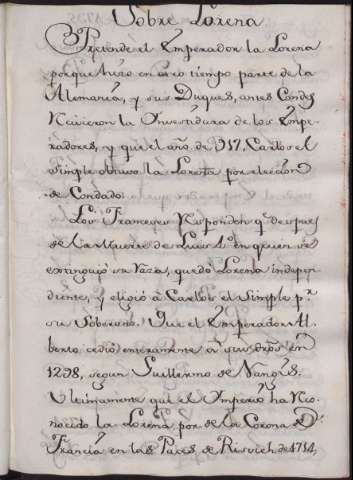 Sobre Lorena
Pretende el Emperador la Lorena
porque hizo en otro tiempo parte de la
Alemania, y sus Duques, antes Condes
Recivieron la Investidura de los Empe-
radores, y que el año de 917. Carlos el
simple obtuvo la Lorena por elección
de Condado.
Los Franceses Responden q.e despues
de la Muerte de Luis 4.º en quien se
extinguió su Raza, quedó Lorena indepen-
diente, y eligió a Carlos el Simple p.r
su Soberano. Que el Emperador Al-
berto cedió enteramente a sus dros en
1298, segun Guillermo de Nangis.
Ultimamente que el Imperio ha Reco-
nocido la Lorena por de la Corona de
Francia en las Paces de Risvich de 1714,